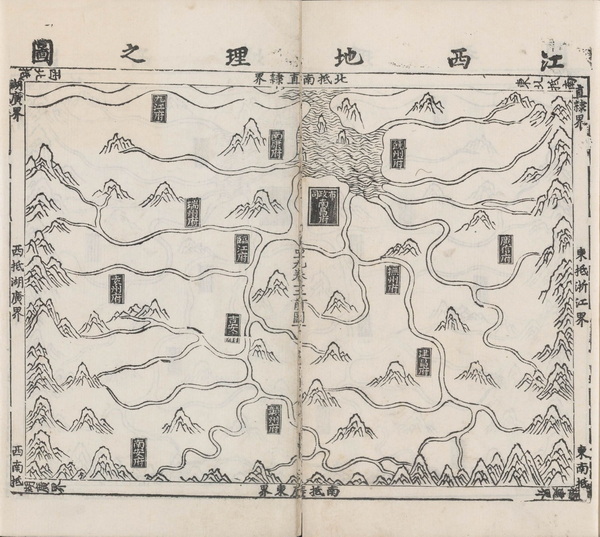 江西地理之圖
北抵南直隸界
東北抵南
直隸界
西北抵
湖廣界
九江府
南康府
饒州府
布政司
南昌府
瑞州府
臨江府
廣信府
東抵浙江界
西抵湖廣界
袁州府
撫州府
吉安
建昌府
贛州府
南安府
東南抵
西南抵
南抵廣東界